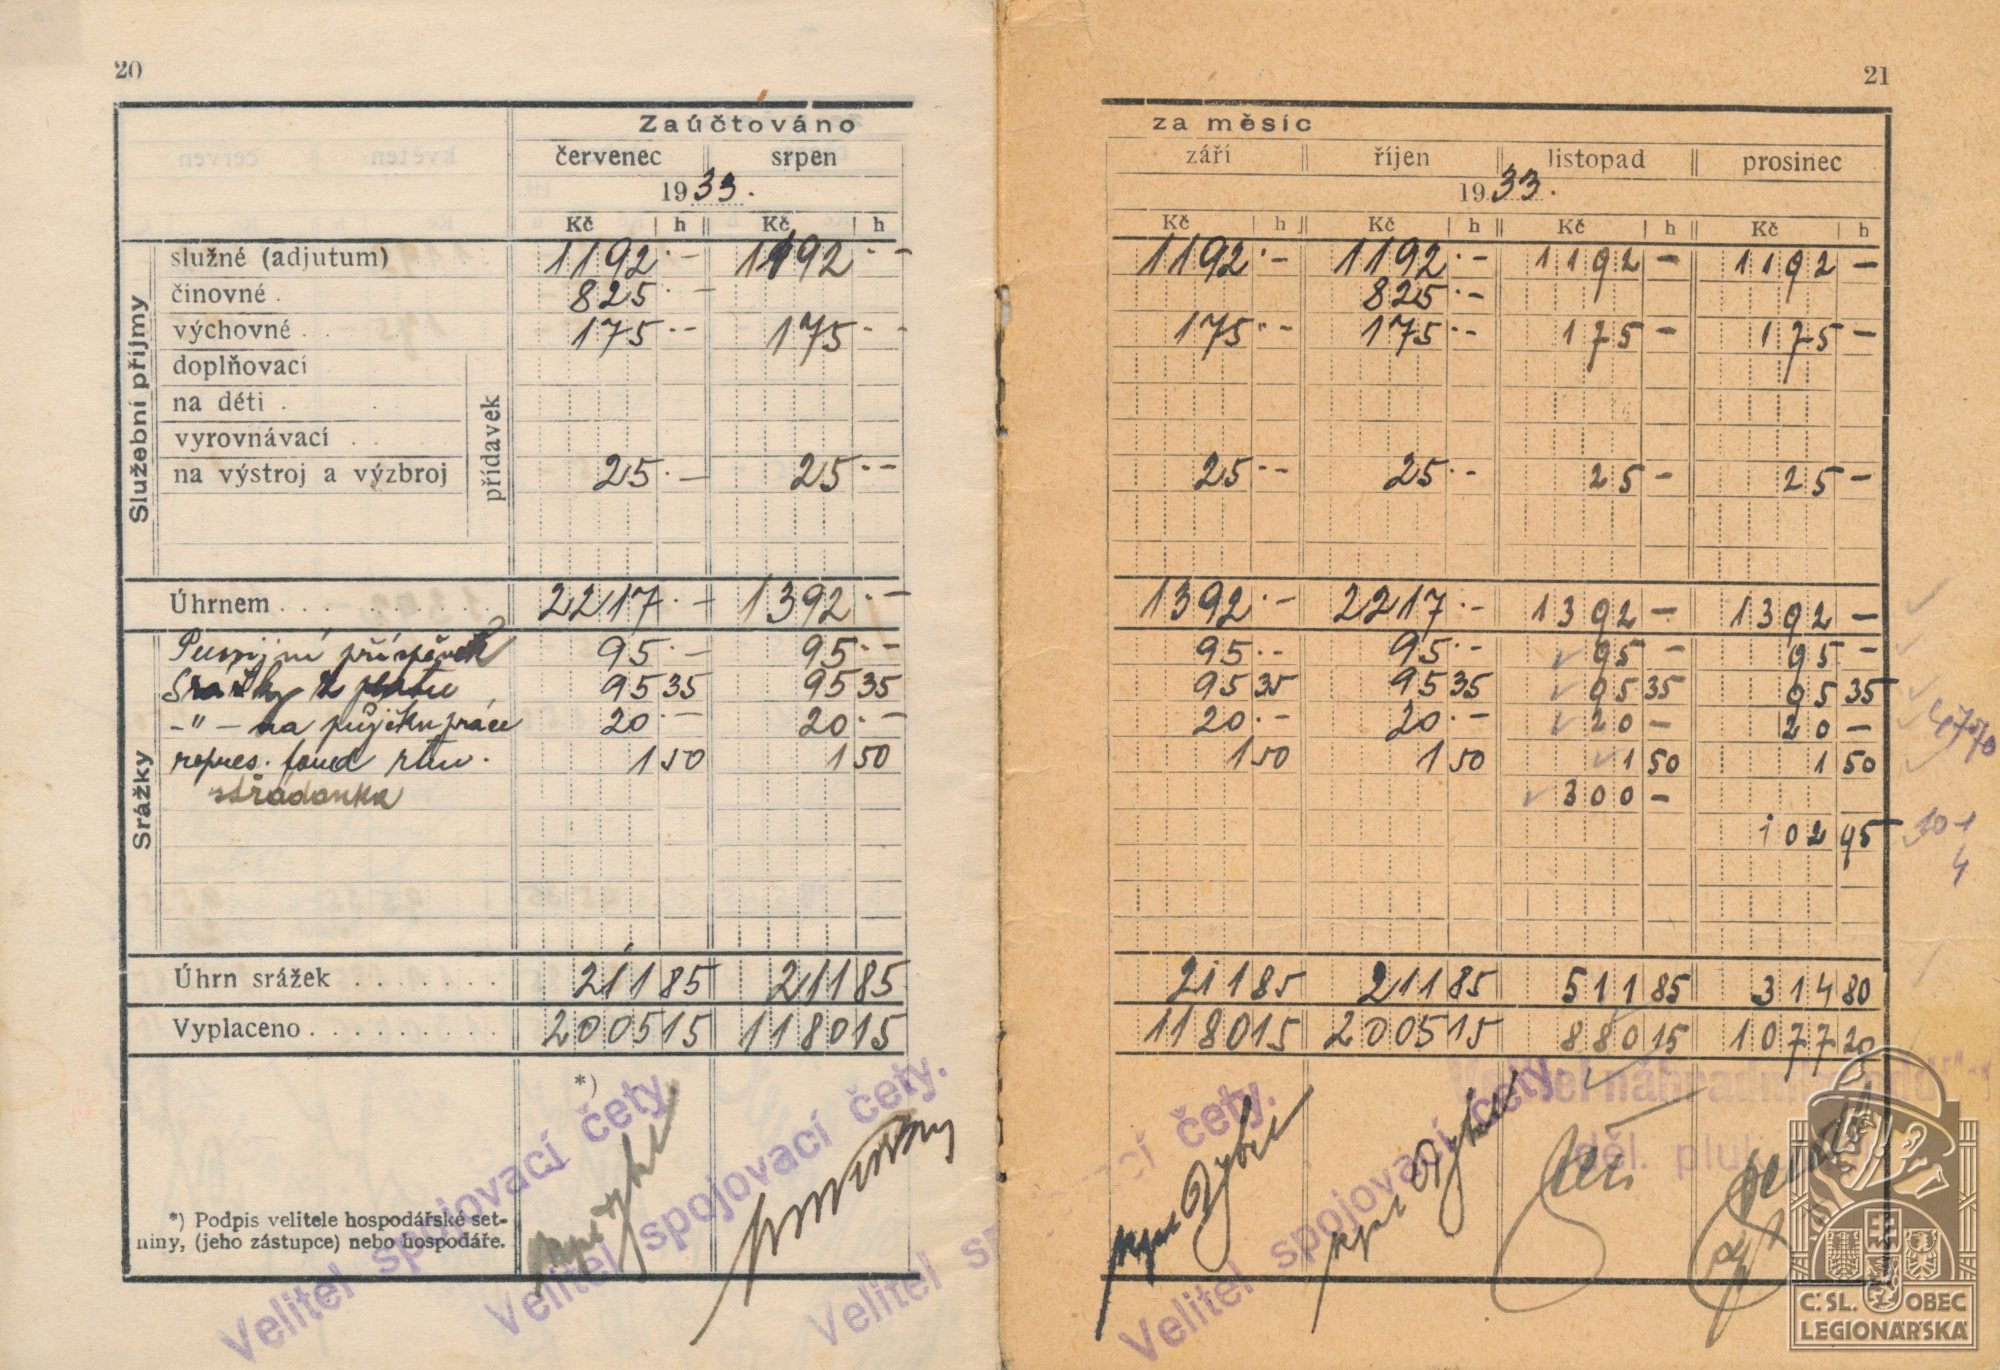 20
21
Zaúčtováno
za měsíc
červenec srpen
září říjen listopad prosinec
1933.
1933.
Kč h Kč h
Kč h Kč h Kč h Kč h
Služební příjmy
služné (adjutum) 1192·– 1192·– 1192·– 1192·– 1192– 1192–
činovné . 825·– 825·–
výchovné . 175·– 175·– 175·– 175·– 175– 175–
doplňovací
na děti .
vyrovnávací . . . .
na výstroj a výzbroj 25·– 25·– 25·– 25·– 25– 25–
přídavek
Úhrnem . . . 2217·– 1392·– 1392·– 2217·– 1392– 1392–
Srážky
Pensijní příspěvek 95·– 95·– 95·– 95·– 95– 95–
Srážky z platu 95 35 95 35 95 35 95 35 95 35 95 35
–"– na půjčku práce 20·– 20·– 20·– 20·– 20– 20–
repres. fond rtm. 1 50 1 50 1 50 1 50 1 50 1 50
střadanka 300–
102 95
Úhrn srážek . . . . . . . 211 85 211 85 211 85 211 85 511 85 314 80
Vyplaceno . . . . . . . . . 2005 15 1180 15 1180 15 2005 15 880 15 1077 20
*)
*) Podpis velitele hospodářské set-
niny, (jeho zástupce) nebo hospodáře.
Velitel spojovací čety.
Velitel spojovací čety.
Velitel spojovací čety.
Velitel spojovací čety.
Č. SL. OBEC
LEGIONÁŘSKÁ